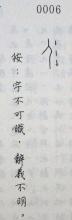 0006
按：字不可識，辭義不明。